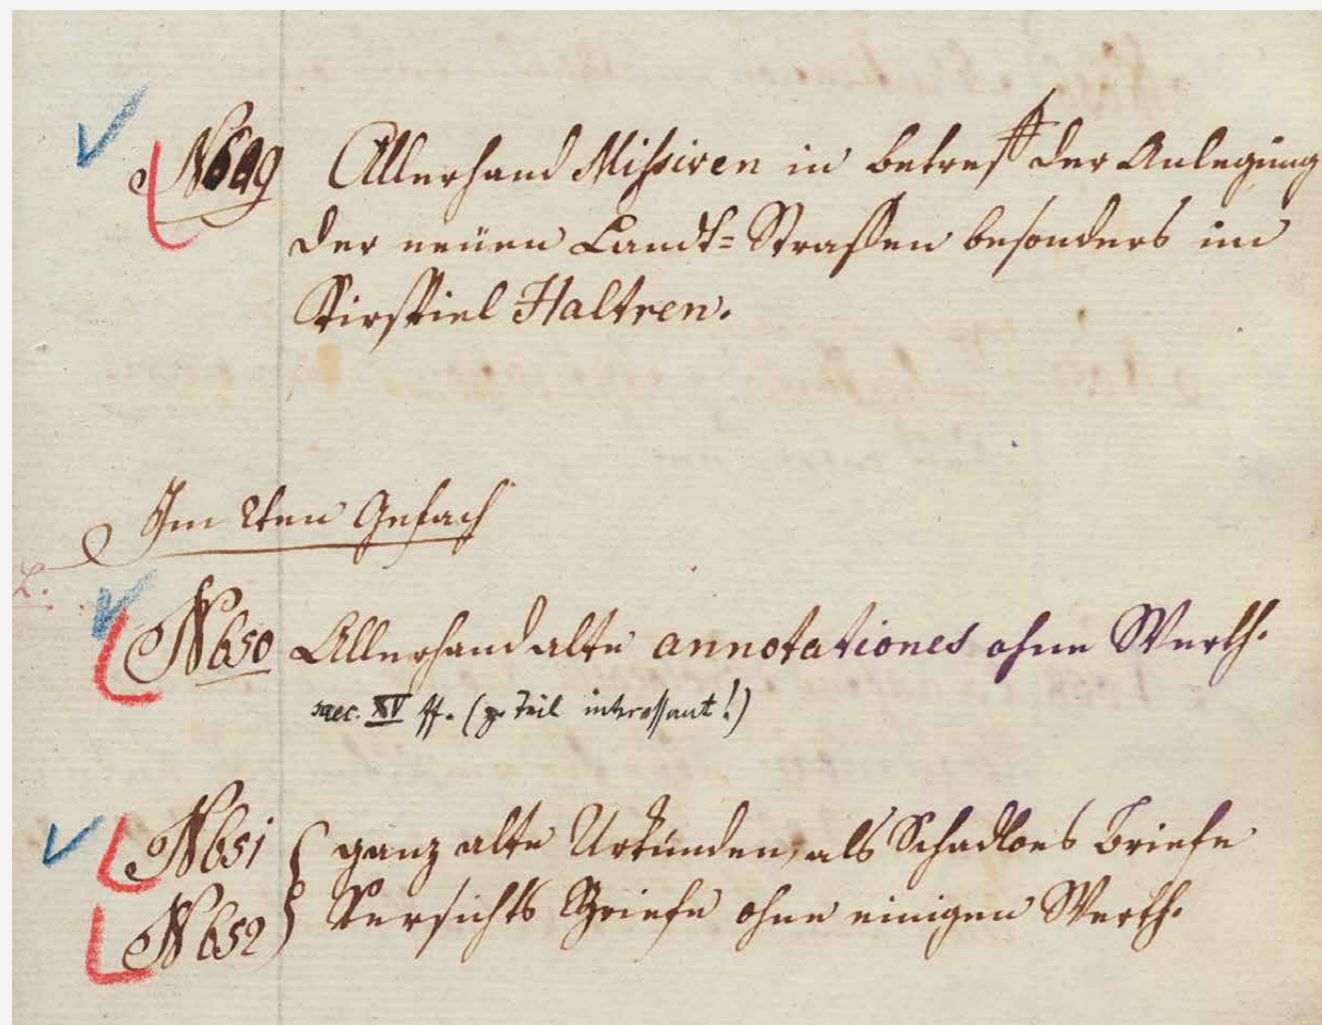 N 649 Allerhand Missiven in betreff der Anlegung
der neuen Landt=Strassen besonders im
Kirspiel Haltren.
Im 2ten Gefach
L.
N 650 Allerhand alte annotationes ohne Werth.
saec. XV ff. (z. Teil interessant!)
N 651 ganz alte Urkunden, als Schadloes briefe
N 652 Versichts Briefe ohne einigen Werth.